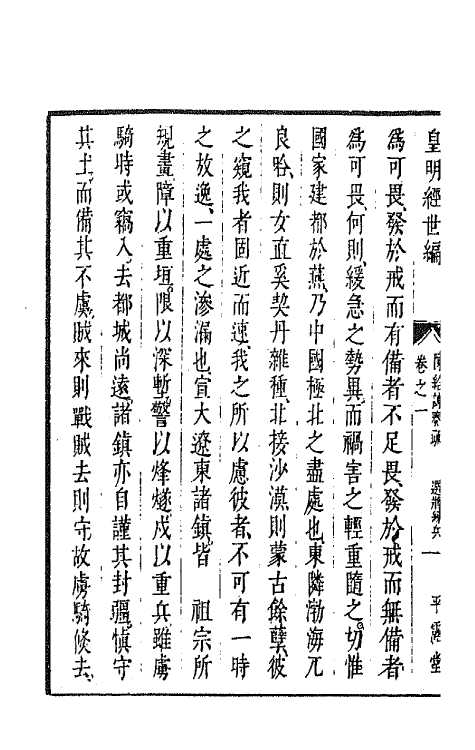 皇明經世編
卷之一 選將練兵 一 平露堂
為可畏發於戒而有備者不足畏發於戒而無備者
為可畏何則緩急之勢異而禍害之輕重隨之切惟
國家建都於燕乃中國極北之盡處也東隣渤海兀
良哈則女直奚契丹雜種北接沙漠則蒙古餘孽彼
之窺我者固近而速我之所以慮彼者不可有一時
之放逸一處之滲漏也宣大遼東諸鎮皆 祖宗所
規畫障以重垣限以深塹警以烽燧戍以重兵雖虜
騎時或竊入去都城尚遠諸鎮亦自謹其封疆慎守
其土而備其不虞賊來則戰賊去則守故虜騎倏去